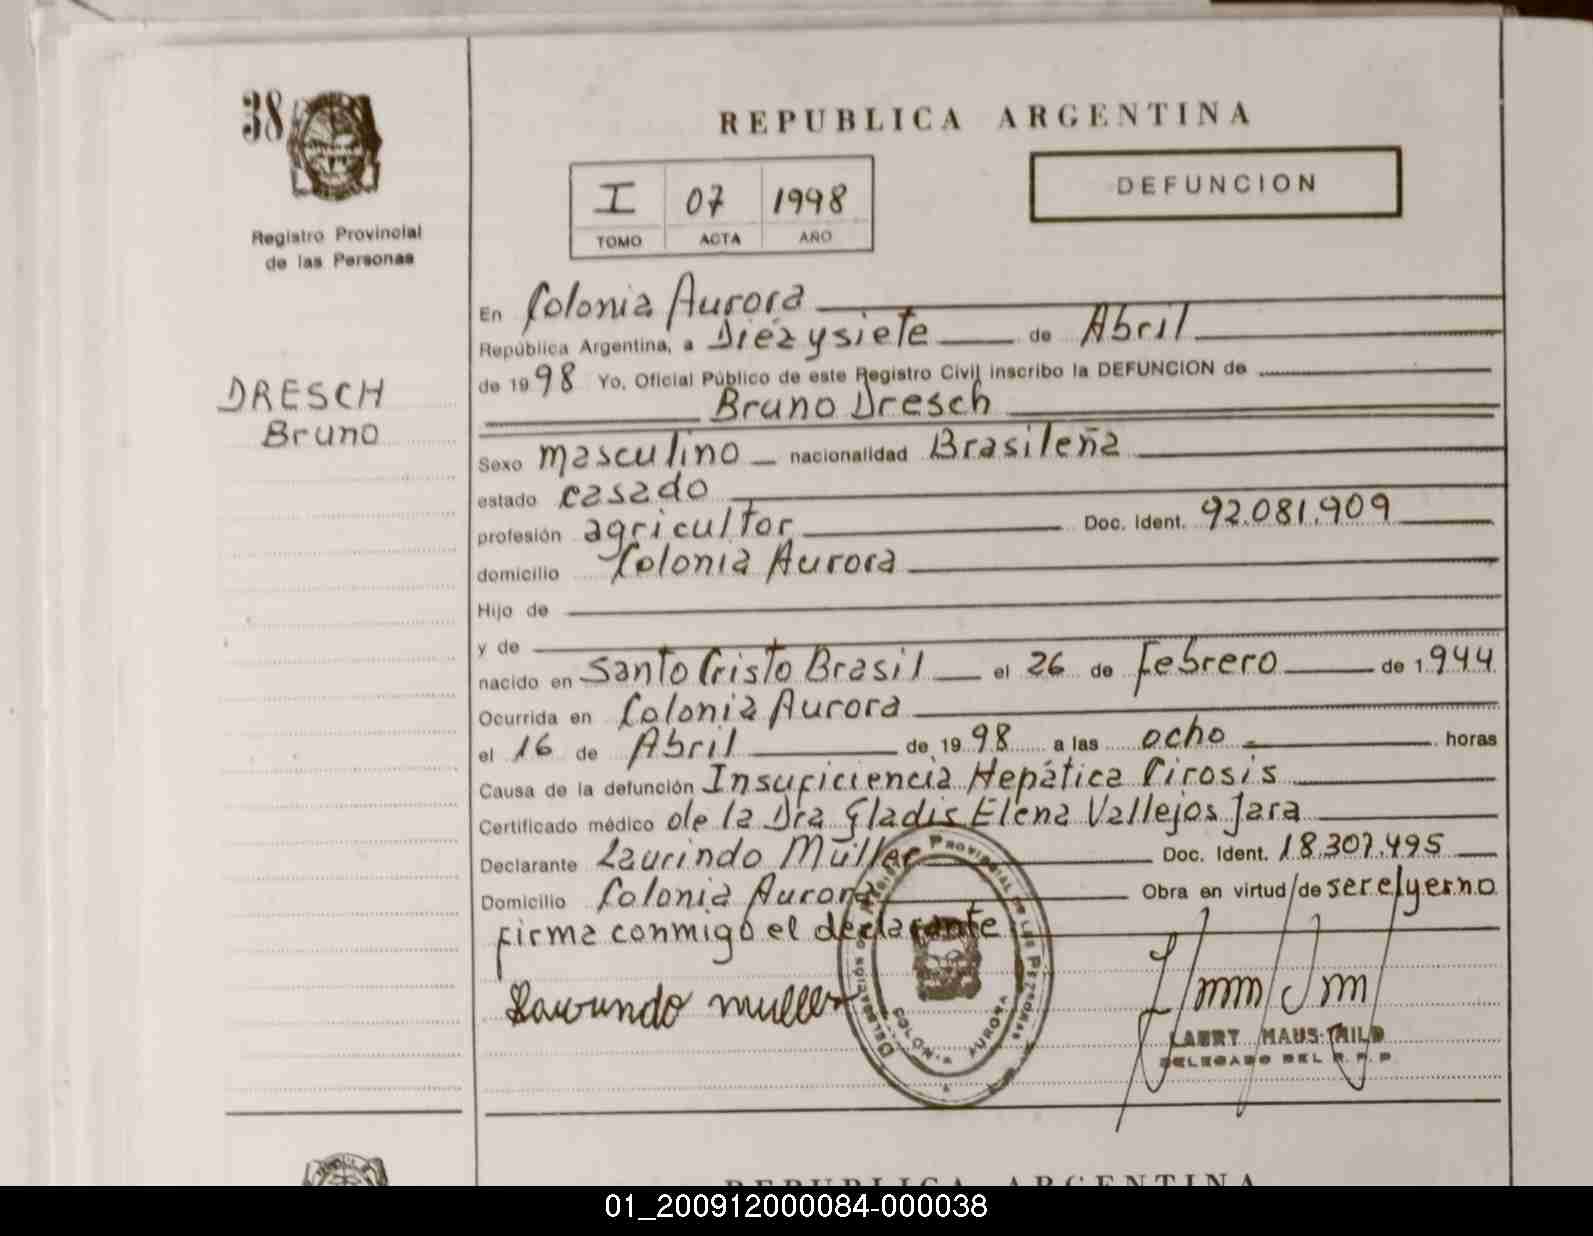 38
Registro Provincial
de las Personas
DRESCH
Bruno
REPUBLICA ARGENTINA
I 07 1998
TOMO ACTA AÑO
DEFUNCION
En Colonia Aurora
República Argentina, a Diézysiete de Abril
de 1998 Yo, Oficial Público de este Registro Civil inscribo la DEFUNCION de
Bruno Dresch
Sexo masculino nacionalidad Brasileña
estado casado
profesión agricultor Doc. Ident. 92.081.909
domicilio Colonia Aurora
Hijo de
y de
nacido en Santo Cristo Brasil el 26 de Febrero de 1.944
Ocurrida en Colonia Aurora
el 16 de Abril de 1998 a las ocho horas
Causa de la defunción Insuficiencia Hepática Cirosis
Certificado médico de la Dra Gladis Elena Vallejos Jara
Declarante Laurindo Müller Doc. Ident. 18.307.495
Domicilio Colonia Aurora Obra en virtud de ser el yerno
firma conmigo el declarante
Laurindo muller
DELEGACIÓN PROVINCIAL DE LAS PERSONAS
COLONIA AURORA
LAURY MAUS
DELEGADO DEL R. P. P
REPUBLICA ARGENTINA
01_200912000084-000038